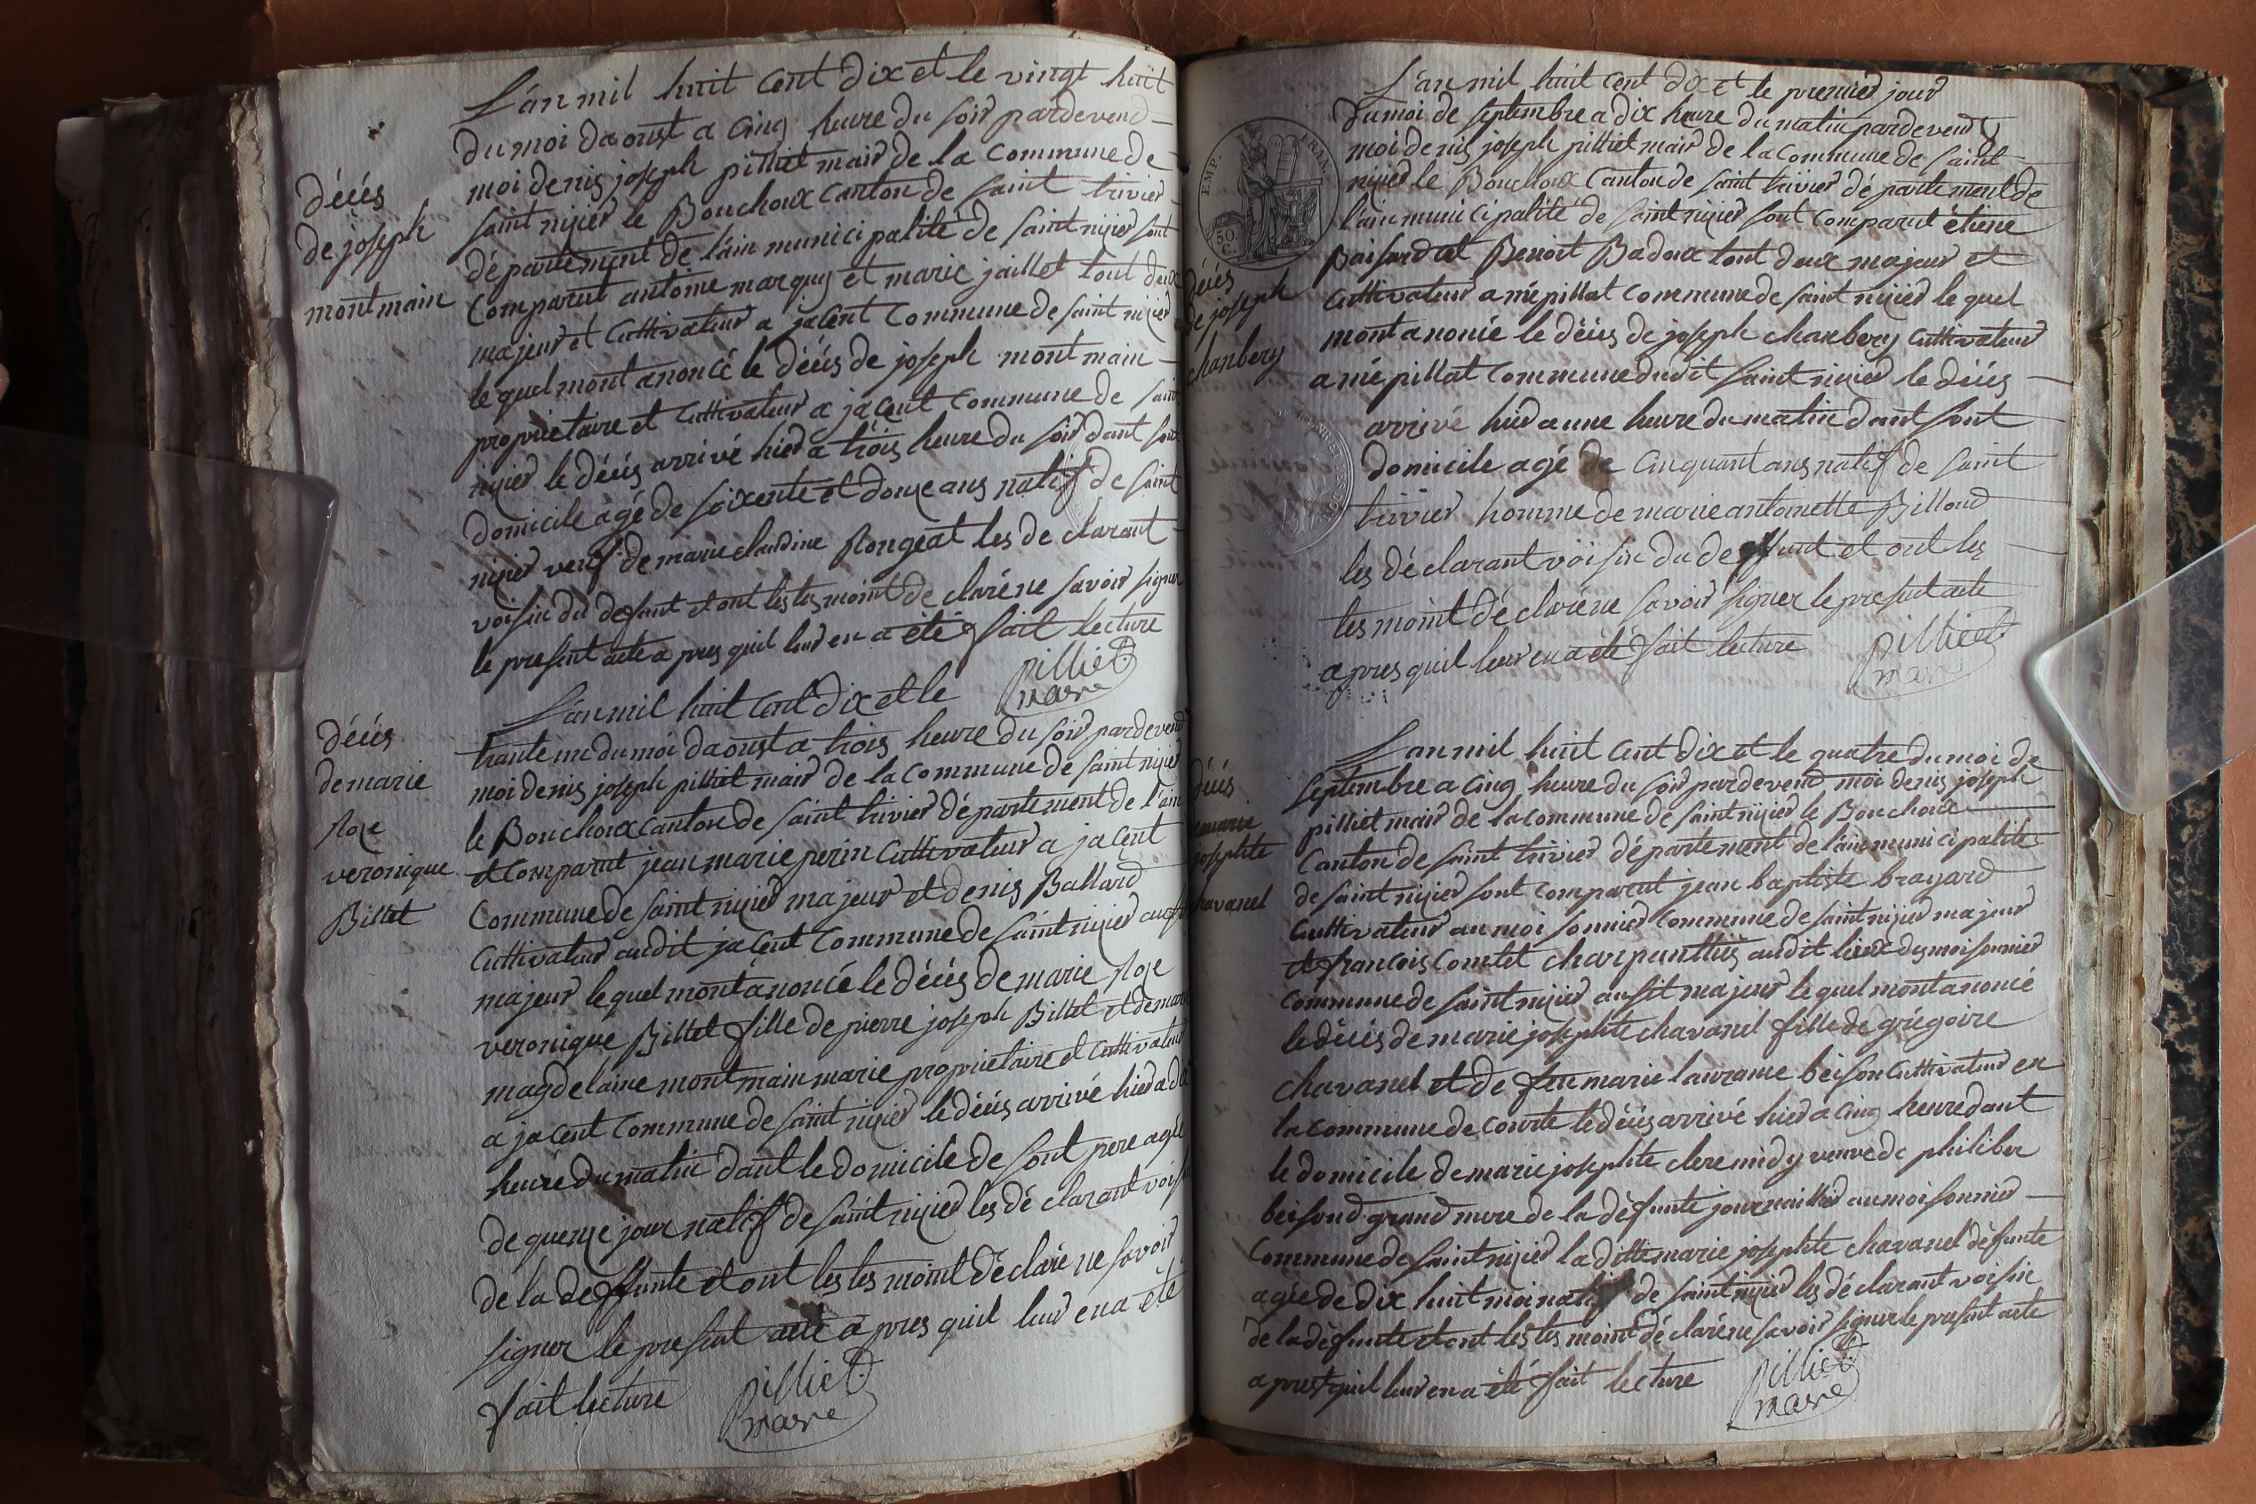 L'an mil huit cent dix et le vingt huit
du moi daoust a cinq heure du soir pardevend
moi denis joseph pilliet mair de la commune de
saint nizier le Bouchoux canton de saint trivier
département de l'ain municipalité de saint nizier sont
comparut antoine marquis et marie jaillet tout deux
majeur et cultivateur a jacent commune de saint nizier
le quel mont anoncé le déces de joseph montmain
proprietaire et cultivateur a jacent commune de saint
nizier le déces arrivé hier a trois heure du soir dant sont
domicile agé de soixente et douze ans natif de saint
nizier veuf de marie claudine Rongeat les de clarant
voisin du defunt et ont les tes moint de claré ne savoir signer
le present acte a pres quil leur en a eté fait lecture
pilliet
mare
décés
de joseph
montmain
L'an mil huit cent dix et le
trante un du moi daoust a trois heure du soir pardevend
moi denis joseph pilliet mair de la commune de saint nizier
le Bouchoux canton de saint trivier département de l'ain
et comparut jean marie perin cultivateur a jacent
commune de saint nizier majeur et denis Ballard
cultivateur audit jacent commune de saint nizier
majeur le quel mont anoncé le déces de marie Roze
veronique Billet fille de pierre joseph Billet et de
magdelaine montmain marie propriétaire et cultivateur
a jacent commune de saint nizier le déces arrivé hier a
heure du matin dant le domicile de sont pere agée
de quenze jour natif de saint nizier les dé clarant
de la deffunte et ont les tes moint dé claré ne savoir
signer le present acte a pres quil leur en a été
fait lecture
pilliet
mare
décés
de marie
Roze
veronique
Billet
L'an mil huit cent dix et le premier jour
du moi de septembre a dix heure du matin pardevend
moi denis joseph pilliet mair de la commune de saint
nizier le Bouchoux canton de saint trivier département de
l'ain municipalité de saint nizier sont comparut étiene
et Benoit Badoux tout deux majeur et
cultivateur a mépillat commune de saint nizier le quel
mont anoncé le déces de joseph chanbery cultivateur
a mépillat commune dudit saint nizier le déces
arrivé hier a une heure du matin dant sont
domicile agé de cinquant ans natif de saint
trivier homme de marie antoinette Billoud
les déclarant voisin du deffunt et ont les
tes moint dé claré ne savoir signer le present acte
a pres quil leur en a été fait lecture
pilliet
mare
EMP.
FRAN.
50.
C.
décés
de joseph
chanbery
L'an mil huit cent dix et le quatre du moi de
septembre a cinq heure du soir pardevend moi denis joseph
pilliet mair de la commune de saint nizier le Bouchoux
canton de saint trivier département de l'ain municipalité
de saint nizier sont comparut jean baptiste brayard
cultivateur au moi sonnier commune de saint nizier majeur
et francois comtet charpanttiés audit lieux des moisonnier
commune de saint nizier ausit majeur le quel mont anoncé
le déces de marie josephte chavanel fille de grégoire
chavanel et de feu marie laurance beison cultivateur en
la commune de courte le déces arrivé hier a cinq heure dant
le domicile de marie josephte cleremidy veuve de philiber
beisond grand mere de la défunte journaillier au moisonnier
commune de saint nizier la ditte marie josephte chavanel défunte
agée de dix huit moi natif de saint nizier les déclarant voisin
de la défunte et ont les tes moint dé claré ne savoir signer le present acte
a pres quil leur en a été fait lecture
pilliet
mare
décés
de marie
josephte
chavanel